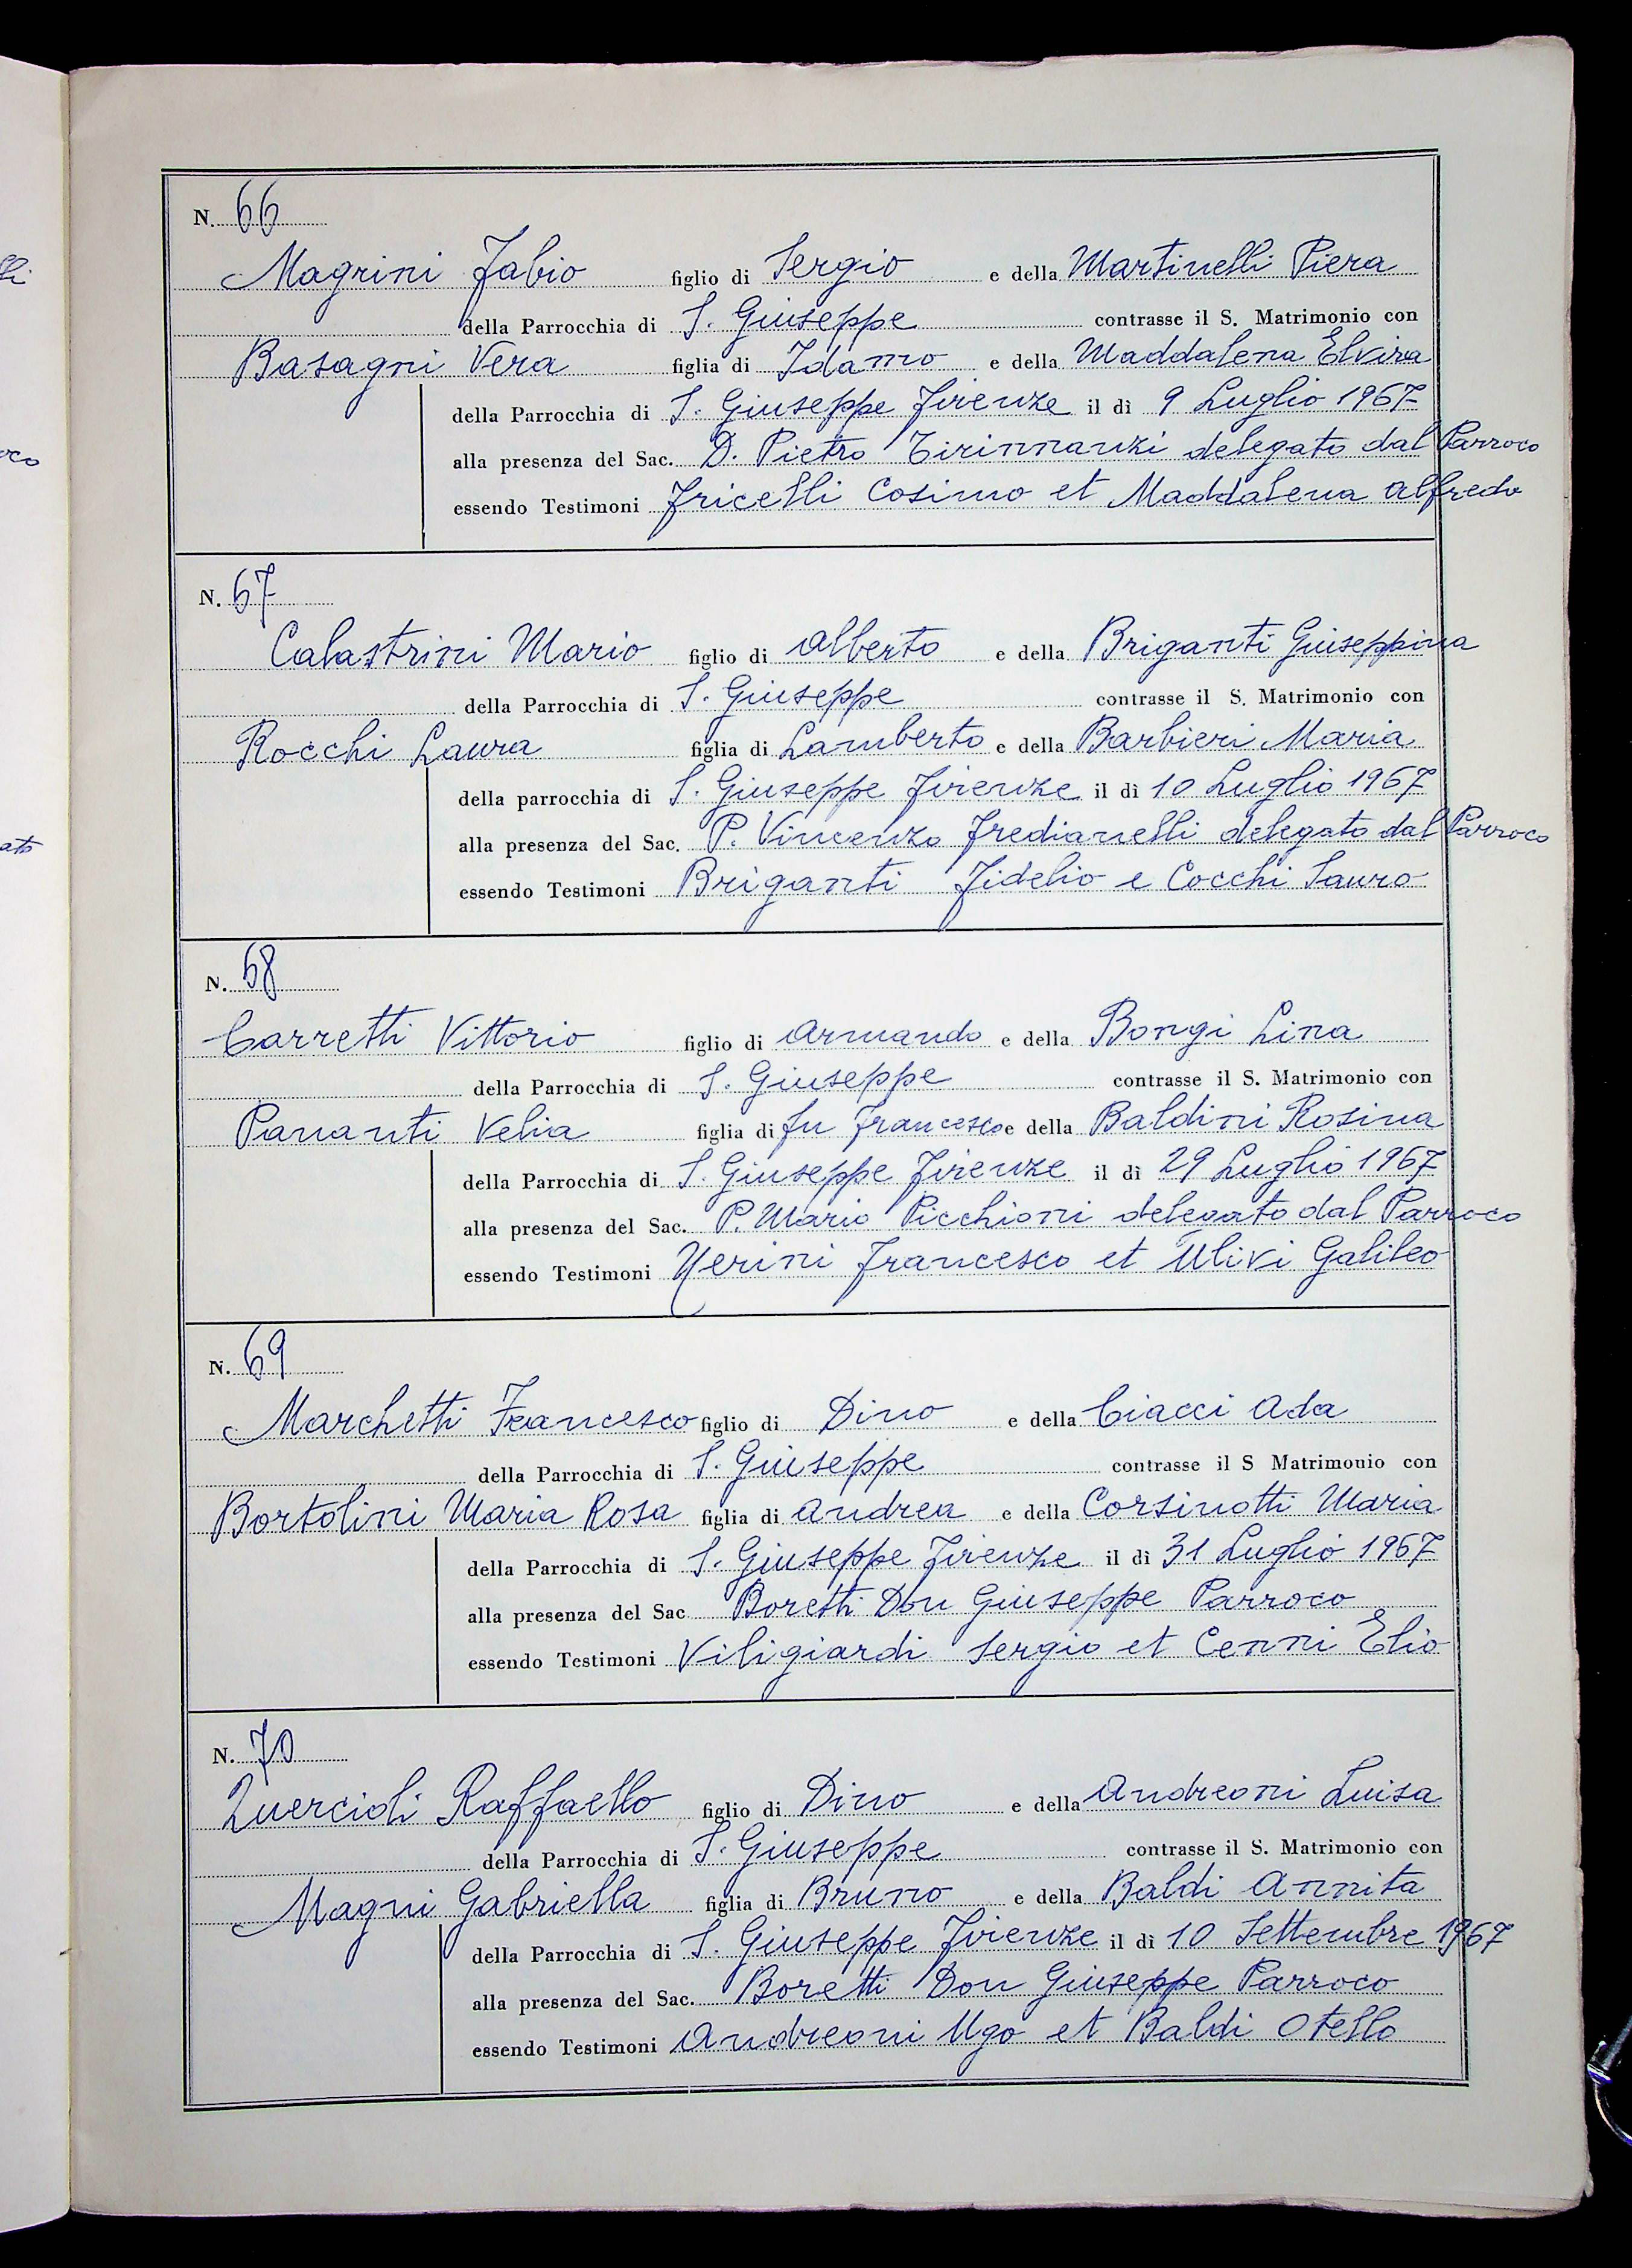 N. 66
Magrini Fabio figlio di Sergio e della Martinelli Piera
della Parrocchia di S. Giuseppe contrasse il S. Matrimonio con
Basagni Vera figlia di Idamo e della Maddalena Elvira
della Parrocchia di S. Giuseppe Firenze il dì 9 Luglio 1967
alla presenza del Sac. D. Pietro Tirinnanzi delegato dal Parroco
essendo Testimoni Fricelli Cosimo et Maddalena Alfredo
N. 67
Calastrini Mario figlio di Alberto e della Briganti Giuseppina
della Parrocchia di S. Giuseppe contrasse il S. Matrimonio con
Rocchi Laura figlia di Lamberto e della Barbieri Maria
della parrocchia di S. Giuseppe Firenze il dì 10 Luglio 1967
alla presenza del Sac. P. Vincenzo Fredianelli delegato dal Parroco
essendo Testimoni Briganti Fidelio e Cocchi Sauro
N. 68
Carretti Vittorio figlio di Armando e della Bongi Lina
della Parrocchia di S. Giuseppe contrasse il S. Matrimonio con
Pananti Velia figlia di fu Francesco e della Baldini Rosina
della Parrocchia di S. Giuseppe Firenze il dì 29 Luglio 1967
alla presenza del Sac. P. Mario Picchioni delegato dal Parroco
essendo Testimoni Nerini Francesco et Ulivi Galileo
N. 69
Marchetti Francesco figlio di Dino e della Ciacci Ada
della Parrocchia di S. Giuseppe contrasse il S Matrimonio con
Bortolini Maria Rosa figlia di Andrea e della Corsinotti Maria
della Parrocchia di S. Giuseppe Firenze il dì 31 Luglio 1967
alla presenza del Sac Boretti Don Giuseppe Parroco
essendo Testimoni Viligiardi Sergio et Cenni Elio
N. 70
Quercioli Raffaello figlio di Dino e della Andreoni Luisa
della Parrocchia di S. Giuseppe contrasse il S. Matrimonio con
Magni Gabriella figlia di Bruno e della Baldi Annita
della Parrocchia di S. Giuseppe Firenze il dì 10 Settembre 1967
alla presenza del Sac. Boretti Don Giuseppe Parroco
essendo Testimoni Andreoni Ugo et Baldi Otello